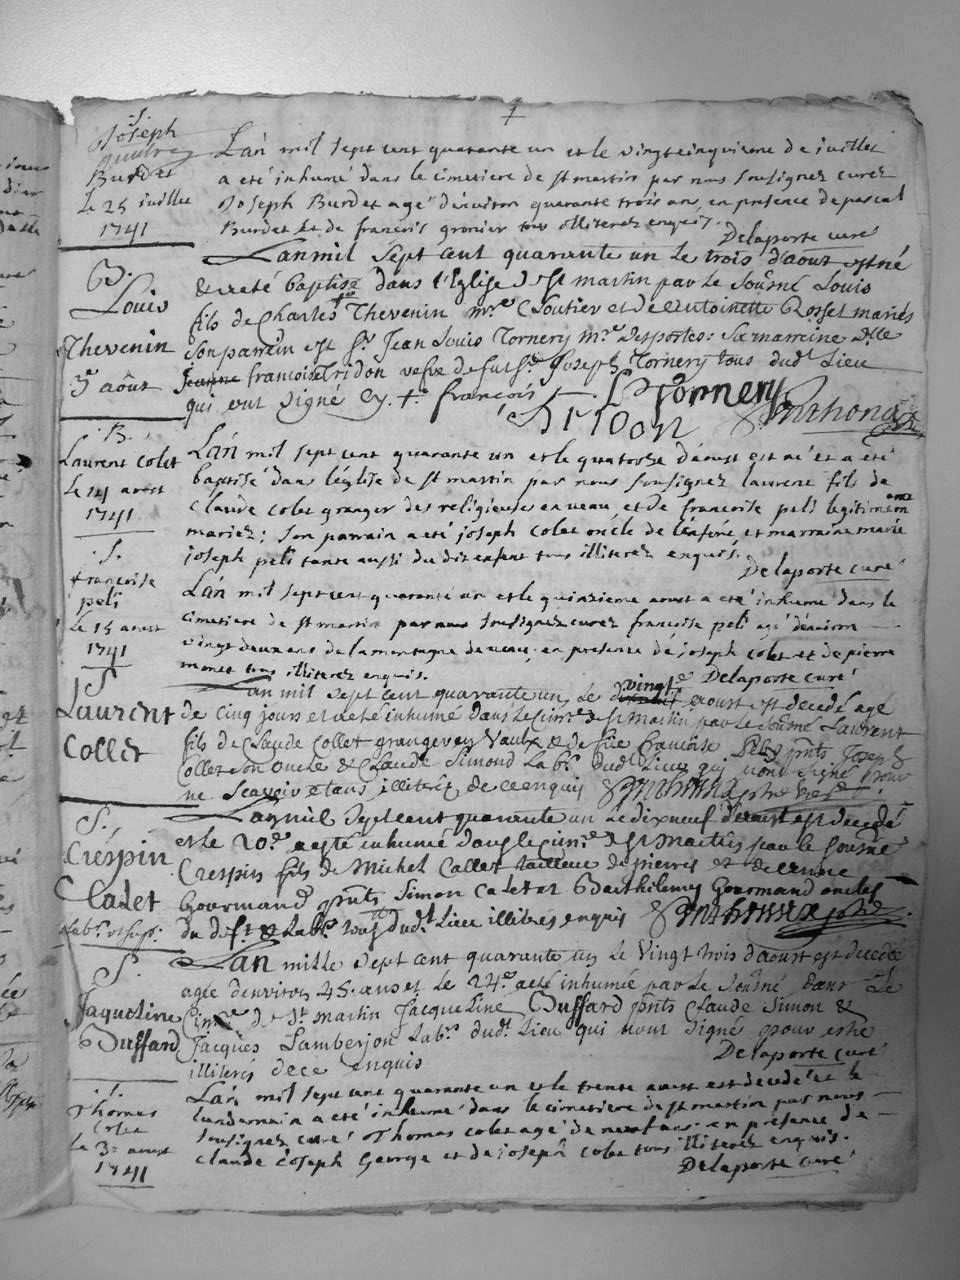 S.
Joseph
Burdet
Le 25 juillet
1741
L'an mil sept cent quarante un et le vingtcinquieme de juillet
a eté inhumé dans le cimetiere de st martin par nous soussignez curez
Joseph Burdet agé d'environ quarante trois ans, en presence de pascal
Burdet et de francois gronier tous illiterez enquis.
Delaporte curé
B.
Louis
Thevenin
3e aôut
Lanmil Sept cent quarante un le trois d'aout est né
& a eté baptisé dans l'Eglise de st martin par le sousné Louis
fils de Charles Thevenin mre Cloutier et de Antoinette Rosset mariés
Son parrain est sr Jean Louis Tornery mre des postes: Sa marraine dlle
Jeanne francoise Tridon vefve de fut sr Joseph Tornery tous dudt Lieu
qui ont Signé Cy. + francois
L Tornery
Tridon
B.
Laurent Colet
Le 14 aoust
1741
L'an mil sept cent quarante un et le quatorze d'aoust est né et a eté
baptisé dans l'église de st martin par nous soussignez laurent fils de
Claude colet granger des religieuses en veau, et de francoise peli legitimemt
mariez; son parrain a eté joseph colet oncle de l'enfant, et marraine marie
joseph peli tante aussi du dit enfant tous illiterez enquis.
Delaporte curé
S.
francoise
peli
Le 15 aoust
1741
L'an mil sept cent quarante un et le quinzieme aoust a eté inhumé dans le
cimetiere de st martin par nous soussignez curez francoise peli agé d'environ
vingt deux ans de la montagne de veau, en presence de joseph colet et de pierre
monet tous illiterez enquis.
Delaporte curé
S
Laurent
Collet
Lan mil Sept Cent quarante un, Le vingt e aoust est decedé agé
de Cinq jours et a eté inhumé dans le Cimre de st Martin par le sousné Laurent
fils de Claude Collet granger en Vaulx & de füe francoise Pely pnts Joseph
Collet son oncle & Claude Simond Labr dudt Lieu qui n'ont signé pour
ne Scavoir etans illiteréz de ce enquis
S.
Crespin
Cladet
Lanmil Sept cent quarante un Le dixneuf d'aoust est decedé
et le 20e a esté inhumé dans le cimre de st Martin par le sousné
Crespin fils de Michel Callet tailleur de pierres et de
Gourmand pnts Simon Cadet et Barthilemy Gourmand oncles
du deft & Labrs tous dudt Lieu illitres enquis
S.
Jaqueline
Buffard
Lan mille sept cent quarante un le Vingt trois d'aoust est decedée
agée denviron 45. ans et le 24e a eté inhumée par le Sousné dans Le
Cimre de St martin Jacqueline Buffard pnts Claude Simon &
Jacques Lamberjon Labrs dudt Lieu qui n'ont Signé pour estre
illiterés de ce enquis
Delaporte curé
S.
Thomas
Colet
Le 30 aoust
1741
L'an mil sept cent quarante un et le trente aoust est decedé et le
lendemain a eté inhumé dans le cimetiere de st martin par nous
soussignez curé Thomas colet agé de neuf ans en presence de
claude joseph George et de joseph colet tous illiterez enquis.
Delaporte curé